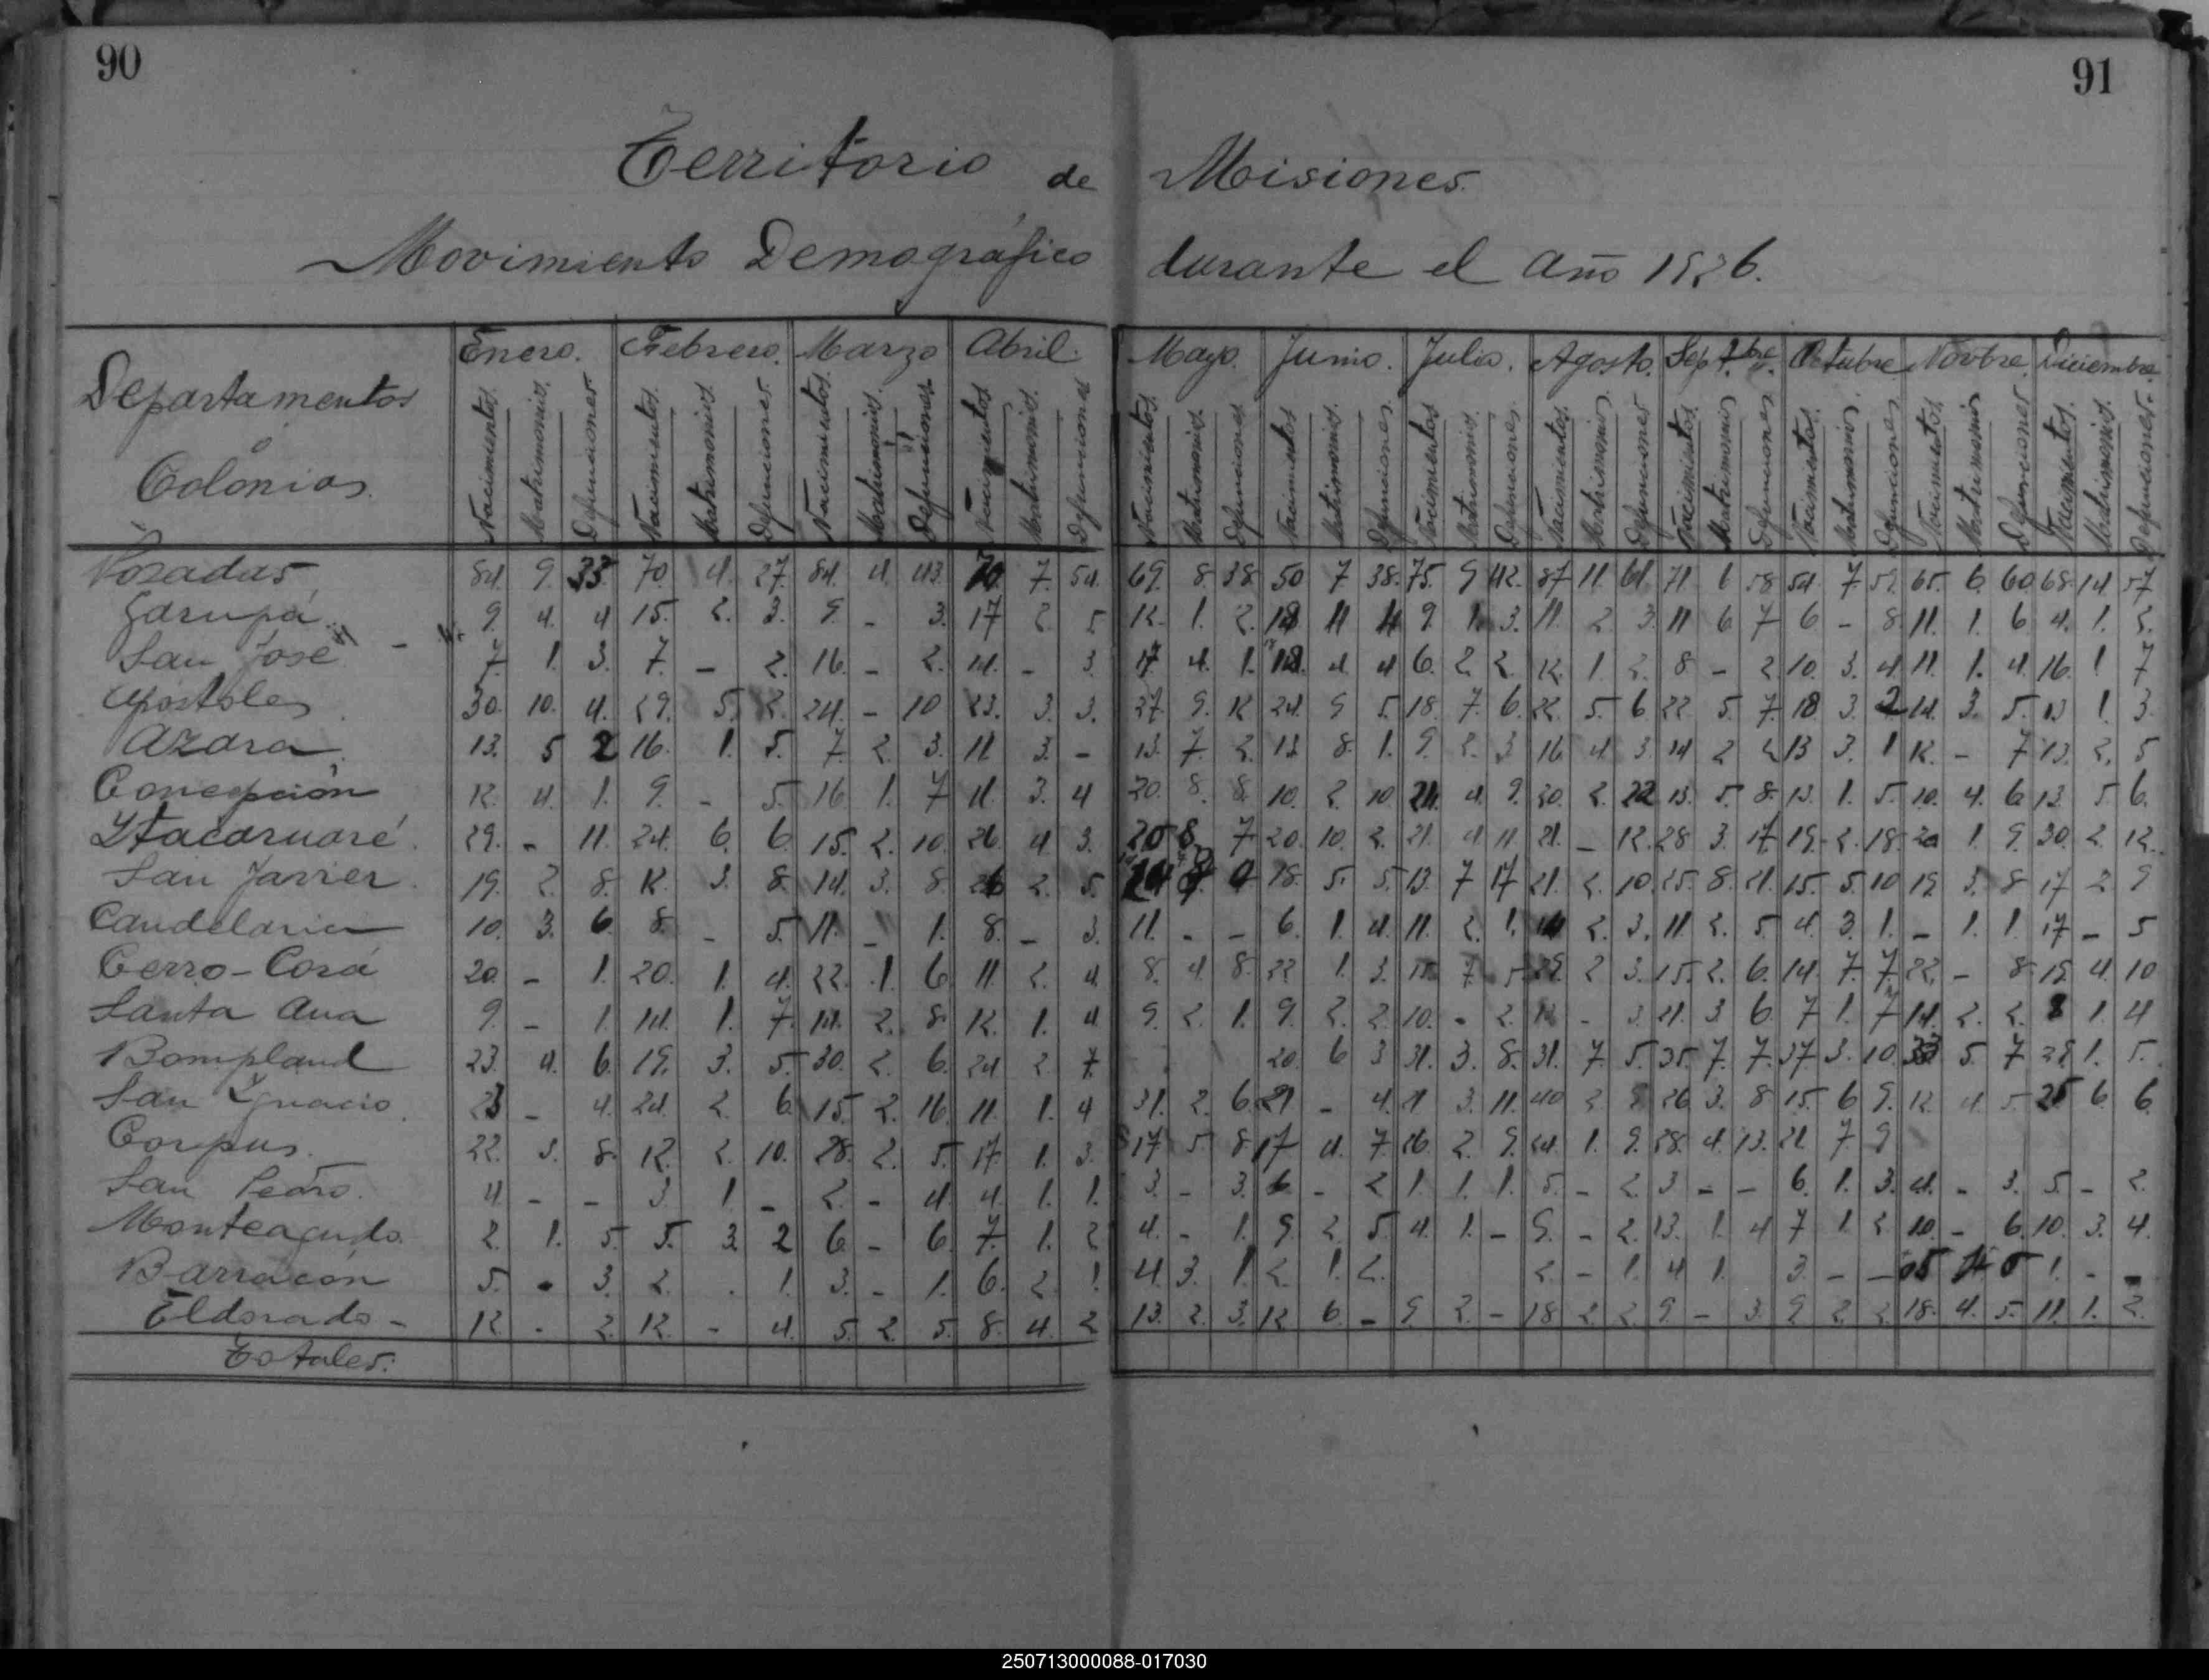 90
91
Territorio de Misiones
Movimiento Demográfico durante el año 1926.
Departamentos
o
Colonias
Enero. Febrero. Marzo Abril. Mayo. Junio. Julio. Agosto. Sept.bre Octubre Novbre. Diciembre.
Nacimientos Matrimonios Defunciones Nacimientos Matrimonios Defunciones Nacimientos Matrimonios Defunciones Nacimientos Matrimonios Defunciones Nacimientos Matrimonios Defunciones Nacimientos Matrimonios Defunciones Nacimientos Matrimonios Defunciones Nacimientos Matrimonios Defunciones Nacimientos Matrimonios Defunciones Nacimientos Matrimonios Defunciones Nacimientos Matrimonios Defunciones Nacimientos Matrimonios Defunciones
Posadas 84. 9. 33. 70 4. 27. 84. 4. 43. 70. 7. 54. 69. 8 38 50 7 38. 75. 9 42. 87 11. 61. 71. 6 58 54. 7. 59. 65. 6. 60 68. 14 57
Garupá 9. 4. 4 15. 2. 3. 9. - 3. 17 2. 5 12. 1. 2. 9. 1. 3. 11. 2. 3. 11 6 7 6 - 8. 11. 1. 6. 4. 1.
San José 7. 1. 3. 7. - 2. 16. - 2. 14. - 3. 17. 4. 1. 4 4 6. 2 2. 12. 1. 2. 8 - 2 10. 3. 4 11. 1. 4 16. 1 7
Apostoles 30. 10. 4. 29. 5. 2. 24. - 10 23. 3. 3. 27. 9. 12 24. 9 5. 18. 7. 6. 22. 5. 6 22 5. 7. 18 3. 2 14. 3. 5. 13 1. 3.
Azara 13. 5 2 16. 1. 5. 7. 2. 3. 11 3. - 13. 7. 2. 8. 1. 9. 2. 3 16 4 3. 14 2 2 13 3. 1 12. - 7 13. 2. 5
Concepción 12. 4. 1. 9. - 5. 16 1. 7 11. 3. 4 20. 8. 8. 10. 2. 10 21. 4 9. 20. 2. 22 13. 5. 8. 13. 1. 5. 10. 4. 6 13. 5 6.
Ytacaruaré. 29. - 11. 24. 6. 6. 15. 2. 10. 26. 4 3. 20 8. 7 20. 10. 2. 21. 4 11 21. - 12. 28 3. 17 19. 2. 18. 20 1. 9. 30. 2 12.
San Javier. 19. 2. 8. 12. 3. 8. 14. 3. 8. 26 2. 5. 18. 5. 5. 13. 7 17 21. 2. 10 25. 8. 21. 15. 5. 10 19. 3. 8 17 2 9
Candelaria 10. 3. 6. 8. - 5. 11. - 1. 8. - 3. 11. - - 6. 1. 4. 11. 2. 1. 2. 3. 11. 2. 5. 4. 3. 1. - 1. 1. 17 - 5
Cerro-Corá 20. - 1. 20. 1. 4. 22. 1. 6. 11. 2. 4. 8. 4 8. 22 1. 3. 7. 5 2 3. 15. 2. 6. 14. 7. 7. 22. - 8. 19. 4. 10
Santa Ana 9. - 1. 14. 1. 7. 14. 2. 8. 12. 1. 4. 9. 2. 1. 9. 2. 2. 10. - 2. - 3. 21. 3 6. 7 1. 7 14. 2. 2. 8 1. 4
Bompland 23. 4. 6. 19. 3. 5. 30. 2. 6. 24 2. 7. 20 6 3 31. 3. 8. 31. 7. 5. 35. 7. 7. 37 3. 10. 33 5 7 1. 5.
San Ygnacio. 23 - 4. 24. 2. 6. 15. 2. 16. 11. 1. 4 31. 2. 6. 21 - 4. 21 3. 11. 40 2 26 3. 8 15. 6 9. 12. 4 5. 25 6. 6.
Corpus. 22. 3. 8. 12. 2. 10. 28. 2. 5. 17. 1. 3. 17 5 8 17 4. 7. 26. 2. 9. 24 1. 9. 28. 4. 13. 21. 7. 9
San Pedro. 4. - - 3. 1. - 2. - 4. 4. 1. 1. 3. - 3. 6 - 2 1. 1. 1. 5. - 2. 3 - - 6. 1. 3. 4. - 3. 5. - 2.
Monteagudo. 2. 1. 5. 5. 3. 2 6. - 6. 7. 1. 2 4. - 1. 9. 2 5. 4. 1. - 9. - 2. 13. 1. 4 7 1. 2. 10. - 6. 10. 3. 4.
Barracón 5. - 3. 2. . 1. 3. - 1. 6. 2 1. 4. 3. 1. 2. 1. 2. 2. - 1. 4 1. 3. - - 1. - -
Eldorado - 12. - 2. 12. - 4. 5. 2. 5. 8. 4. 2 13. 2. 3. 12 6. - 9. 2. - 18 2 2. 9. - 3. 9 2 2. 18. 4. 5. 11. 1. 2.
Totales:
250713000088-017030